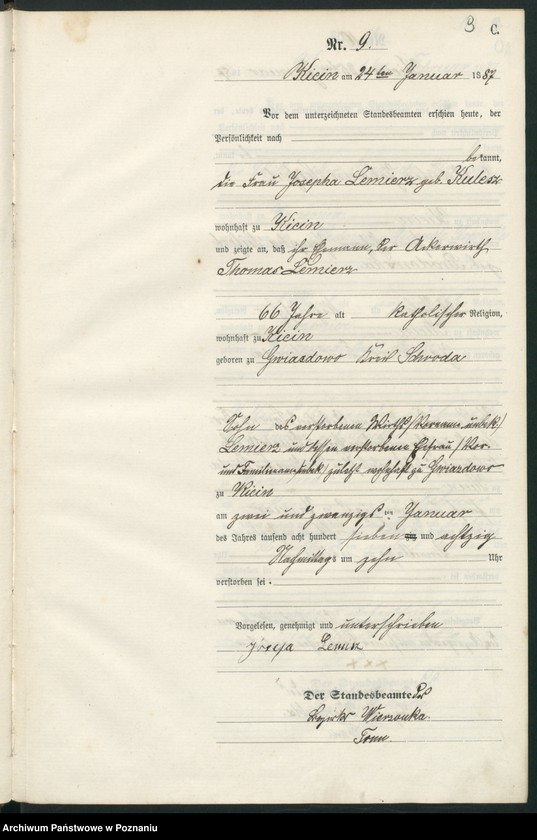 3 C.
Nr. 9.
Kicin am 24ten Januar 1887
Vor dem unterzeichneten Standesbeamten erschien heute, der
Persönlichkeit nach
bekannt,
die Frau Josepha Lemierz geb. Kulesz
wohnhaft zu Kicin
und zeigte an, daß ihr Ehemann, der Ackerwirth
Thomas Lemierz
66 Jahre alt katholischer Religion,
wohnhaft zu Kicin
geboren zu Gwiazdowo Kreis Schroda
Sohn des verstorbenen Wirths /Vorname unbek:/
Lemierz und dessen verstorbenen Ehefrau /Vor-
und Familienname unbek:/ zuletzt wohnhaft zu Gwiazdowo
zu Kicin
am zwei und zwanzigsten Januar
des Jahres tausend acht hundert sieben und achtzig
Nachmittags um zehn Uhr
verstorben sei.
Vorgelesen, genehmigt und unterschrieben
Josefa Lemirz
Der Standesbeamte des
Bezirks Wierzonka.